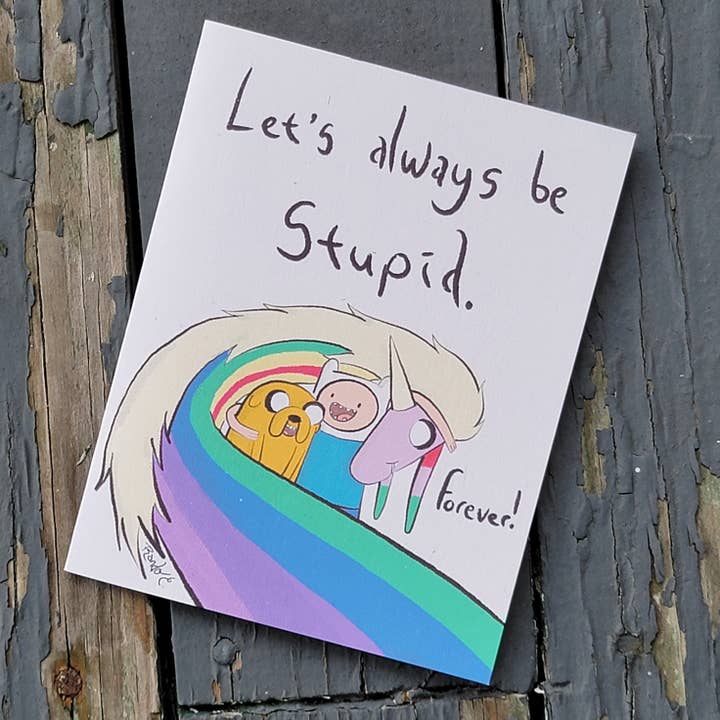 Let's always be
Stupid.
Forever!